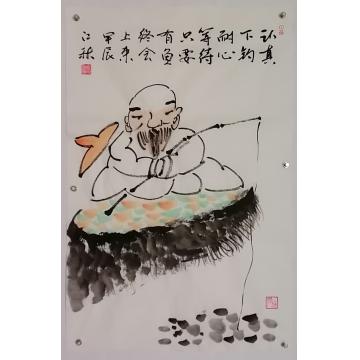 认真
下钓
耐心
等待
只要
有鱼
终会
上来
甲辰